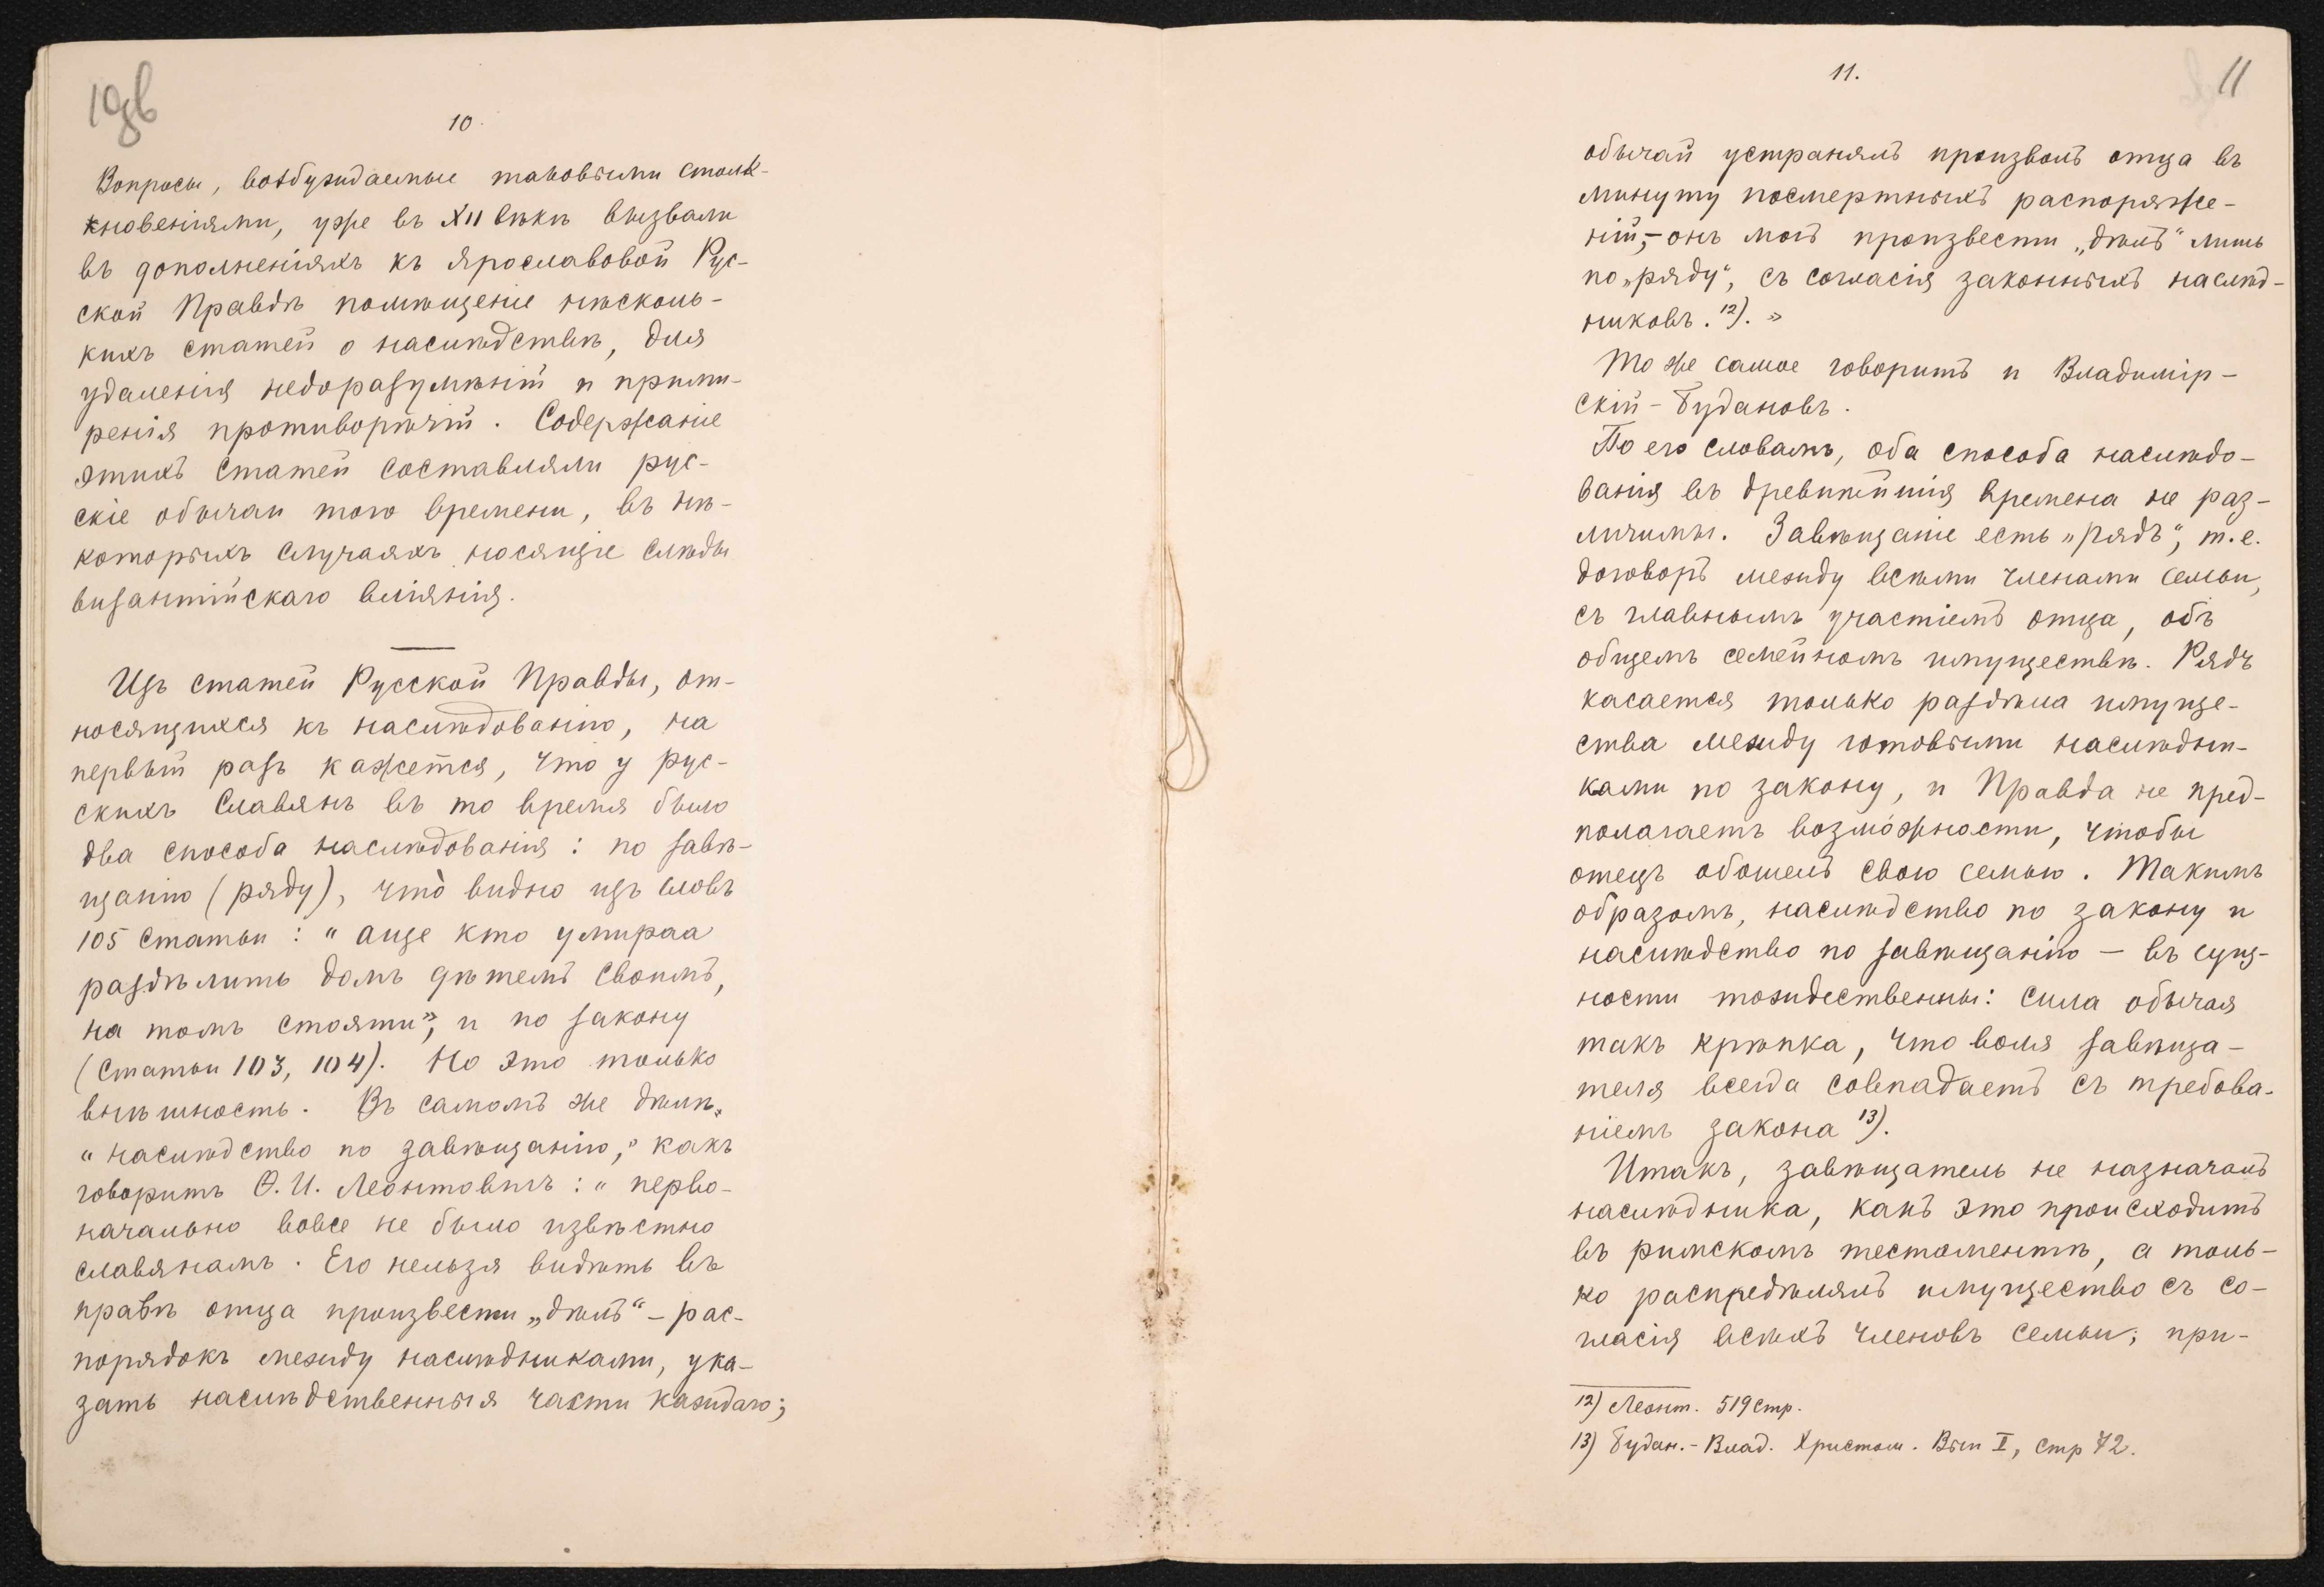 10об
10.
Вопросы, возбуждаемые таковыми столк-
кновеніями, уже въ XII вѣкѣ вызвали
въ дополненіяхъ къ Ярославовой Рус-
ской Правдѣ помѣщеніе нѣсколь-
кихъ статей о наслѣдствѣ, для
удаленія недоразумѣній и прими-
ренія противорѣчій. Содержаніе
этихъ статей составляли рус-
скіе обычаи того времени, въ нѣ-
которыхъ случаяхъ носящіе слѣды
византійскаго вліянія.
Изъ статей Русской Правды, от-
носящихся къ наслѣдованію, на
первый разъ кажется, что у рус-
скихъ Славянъ въ то время было
два способа наслѣдованія: по завѣ-
щанію (ряду), что̀ видно изъ словъ
105 статьи: "аще кто умираа
раздѣлить домъ дѣтемъ своимъ,
на томъ стояти", и по закону
(статьи 103, 104). Но это только
внѣшность. Въ самомъ же дѣлѣ,
"наслѣдство по завѣщанію," какъ
говоритъ Ѳ. И. Леонтовичъ: "перво-
начально вовсе не было извѣстно
славянамъ. Его нельзя видѣть въ
правѣ отца произвести „дѣлъ“ – рас-
порядокъ между наслѣдниками, ука-
зать наслѣдственныя части каждаго;
11
11.
обычай устранялъ произволъ отца въ
минуту посмертныхъ распоряже-
ній, – онъ могъ произвести „дѣлъ“ лишь
по „ряду“, съ согласія законныхъ наслѣд-
никовъ. 12). "
То же самое говоритъ и Владимір-
скій-Будановъ.
По его словамъ, оба способа наслѣдо-
ванія въ древнѣйшія времена не раз-
личимы. Завѣщаніе есть „рядъ“, т. е.
договоръ между всѣми членами семьи,
съ главнымъ участіемъ отца, объ
общемъ семейномъ имуществѣ. Рядъ
касается только раздѣла имуще-
ства между готовыми наслѣдни-
ками по закону, и Правда не пред-
полагаетъ возможности, чтобы
отецъ обошелъ свою семью. Такимъ
образомъ, наслѣдство по закону и
наслѣдство по завѣщанію – въ сущ-
ности тождественны: сила обычая
такъ крѣпка, что воля завѣща-
теля всегда совпадаетъ съ требова-
ніемъ закона 13).
Итакъ, завѣщатель не назначалъ
наслѣдника, какъ это происходитъ
въ римскомъ тестаментѣ, а толь-
ко распредѣлялъ имущество съ со-
гласія всѣхъ членовъ семьи; при-
12) Леонт. 519 стр.
13) Будан.-Влад. Христом. Вып I, стр 72.